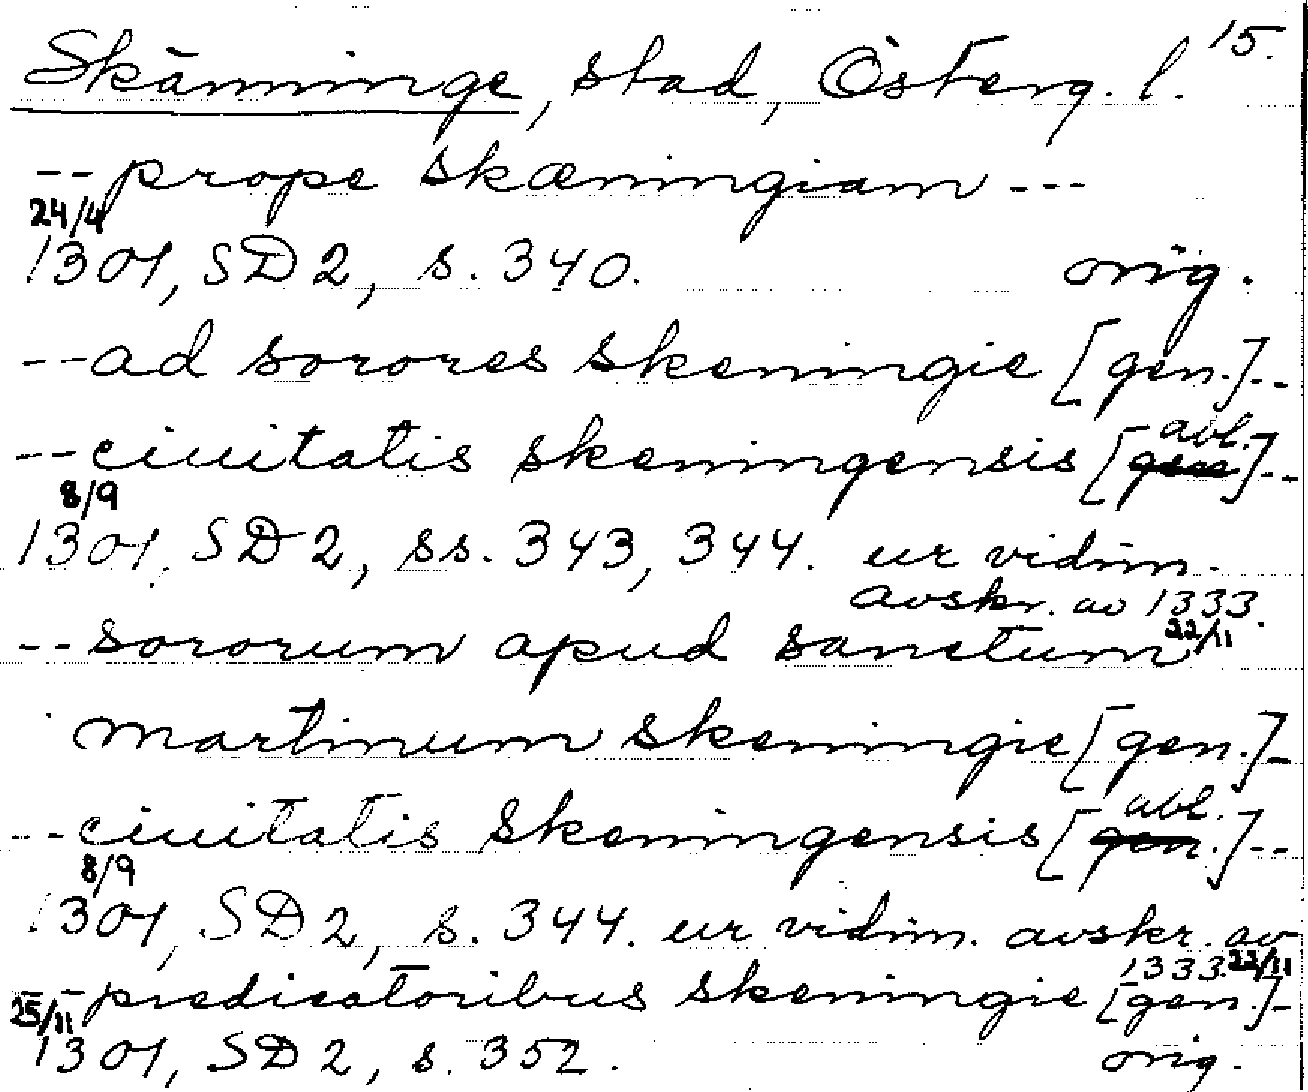 Skänninge, stad, Österg. l. 15.
-- prope skæningiam ---
24/4
1301, SD 2, s. 340. orig.
-- ad sorores skeningie [gen.]--
-- ciuitatis skeningensis [gen abl.]--
8/9
1301, SD 2, ss. 343, 344. ur vidim.
avskr. av 1333.
22/11
-- sororum apud sanctum
martinum skeningie [gen.]-
-- ciuitatis skeningensis [gen. abl.]--
8/9
1301, SD 2, s. 344. ur vidim. avskr. av
1333 22/11
-- predicatoribus skeningie [gen.]-
25/11
1301, SD 2, s. 352. orig.